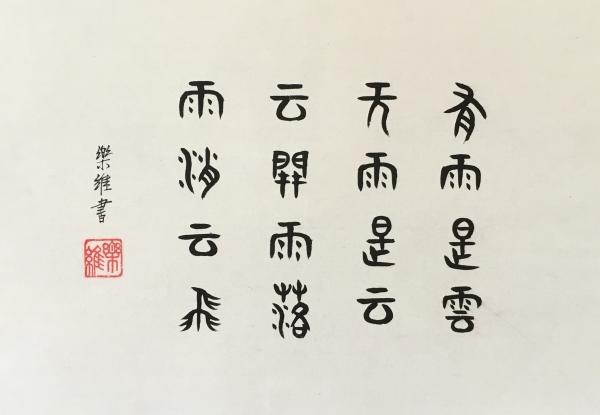 有雨是雲
无雨是云
云開雨落
雨消云飛
樂維書
樂維